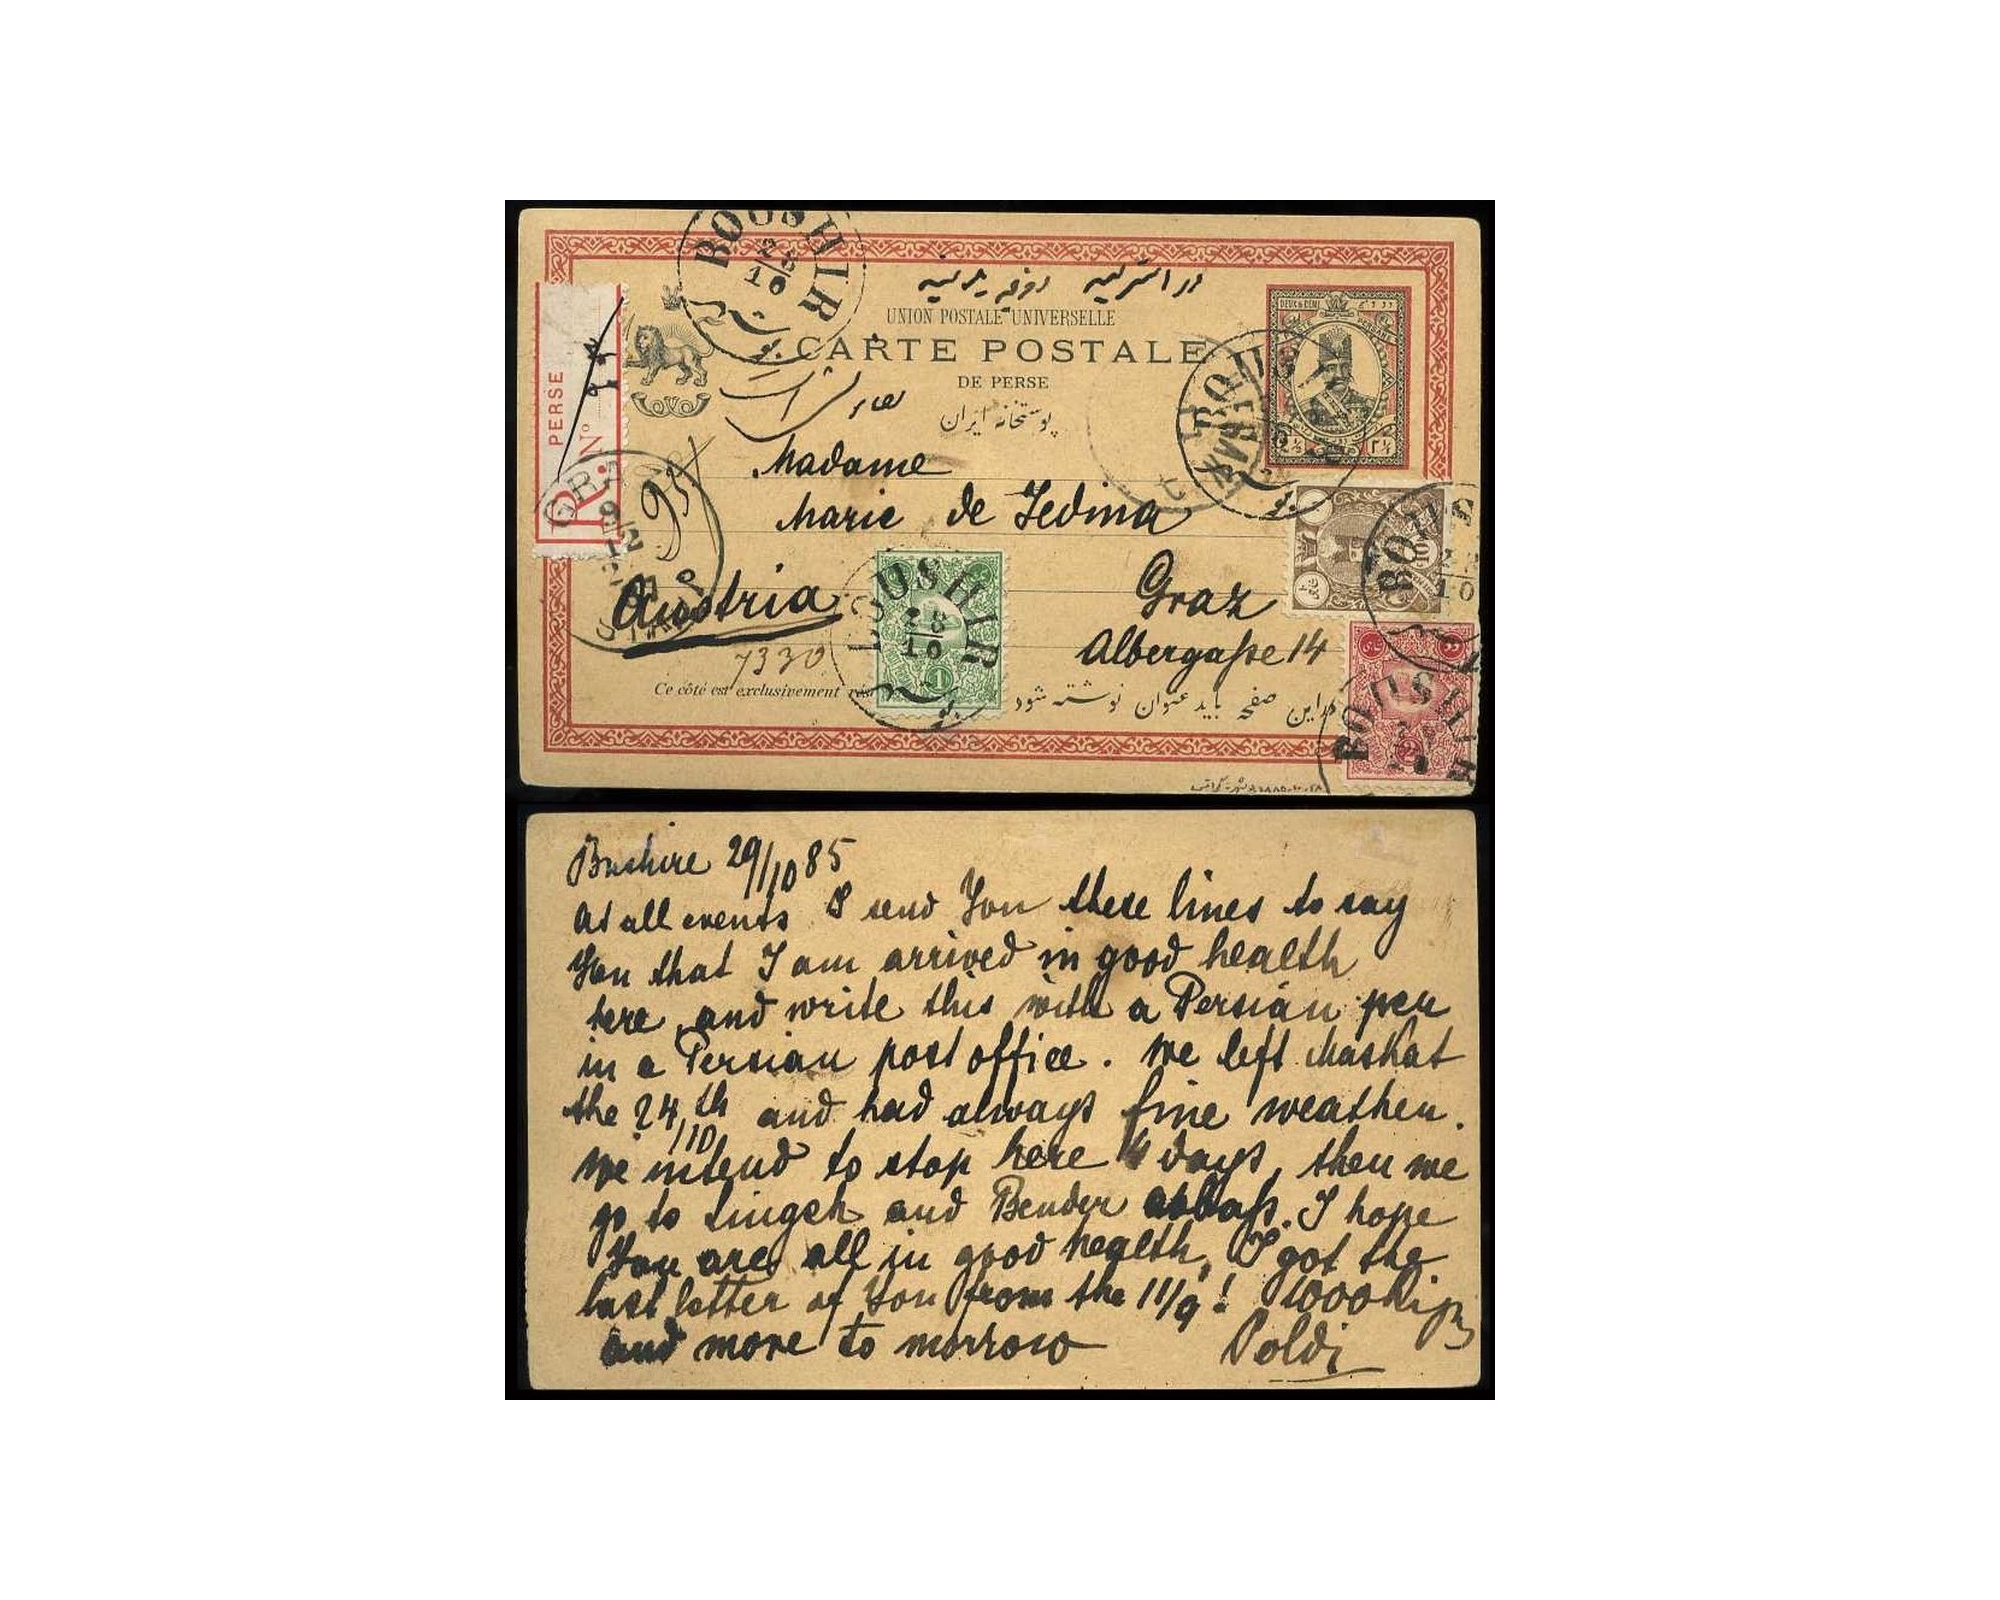 BOOSHIR
28
10
UNION POSTALE UNIVERSELLE
CARTE POSTALE
DE PERSE
پوستخانه ایران
DEUX & DEMI
2½
۲½
PERSE
R. Nº
GRAZ
9
12
95
Madame
Marie de Jedina
Austria
Graz
Albergaſse 14
7330
BUSHIR
28
10
1
10
BOUSHIR
10
BOUSHIR
Ce côté est exclusivement rés
دراین صفحه باید عنوان نوشته شود
Bushire 29/10 85
At all events I send You these lines to say
You that I am arrived in good health
here, and write this with a Persian pen
in a Persian post office. We left Maskat
the 24th/10 and had always fine weather.
We intend to stop here 4 days, then we
go to Lingeh and Bender abbaſs. I hope
You are all in good health, I got the
last letter of You from the 11/9! 1000 Kiſs
and more to morrow Poldi